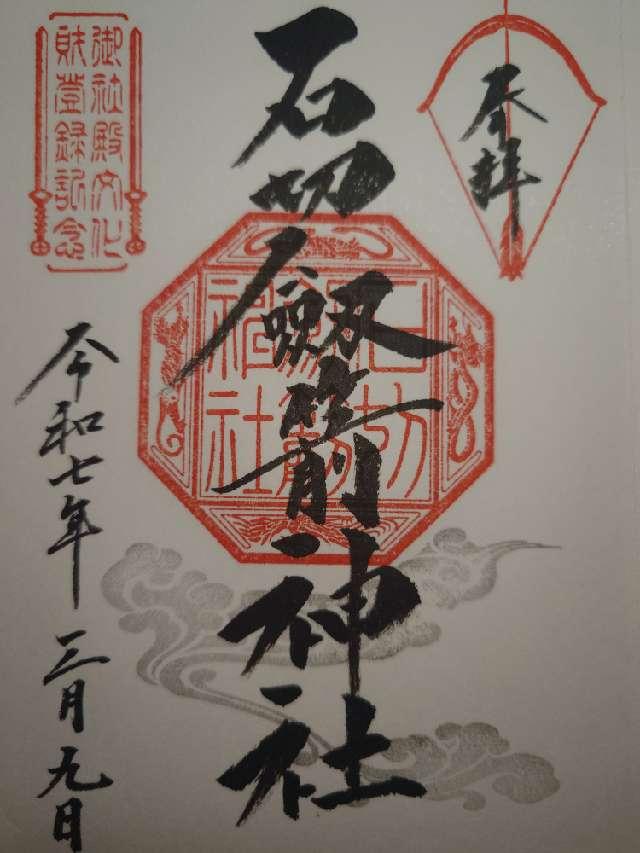 奉拝
石切劔箭神社
御社殿文化
財登録記念
石切
劔箭
神社
令和七年
三月九日